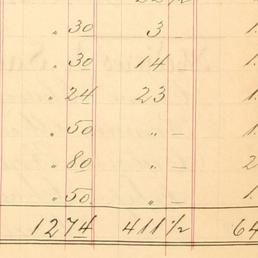 . 30 3 — 1.
. 30 14 — 1.
. 24 23 1.
. 50 " — 1.
. 80 " — 2
. 50 " — 1.
1274 411 1/2 64